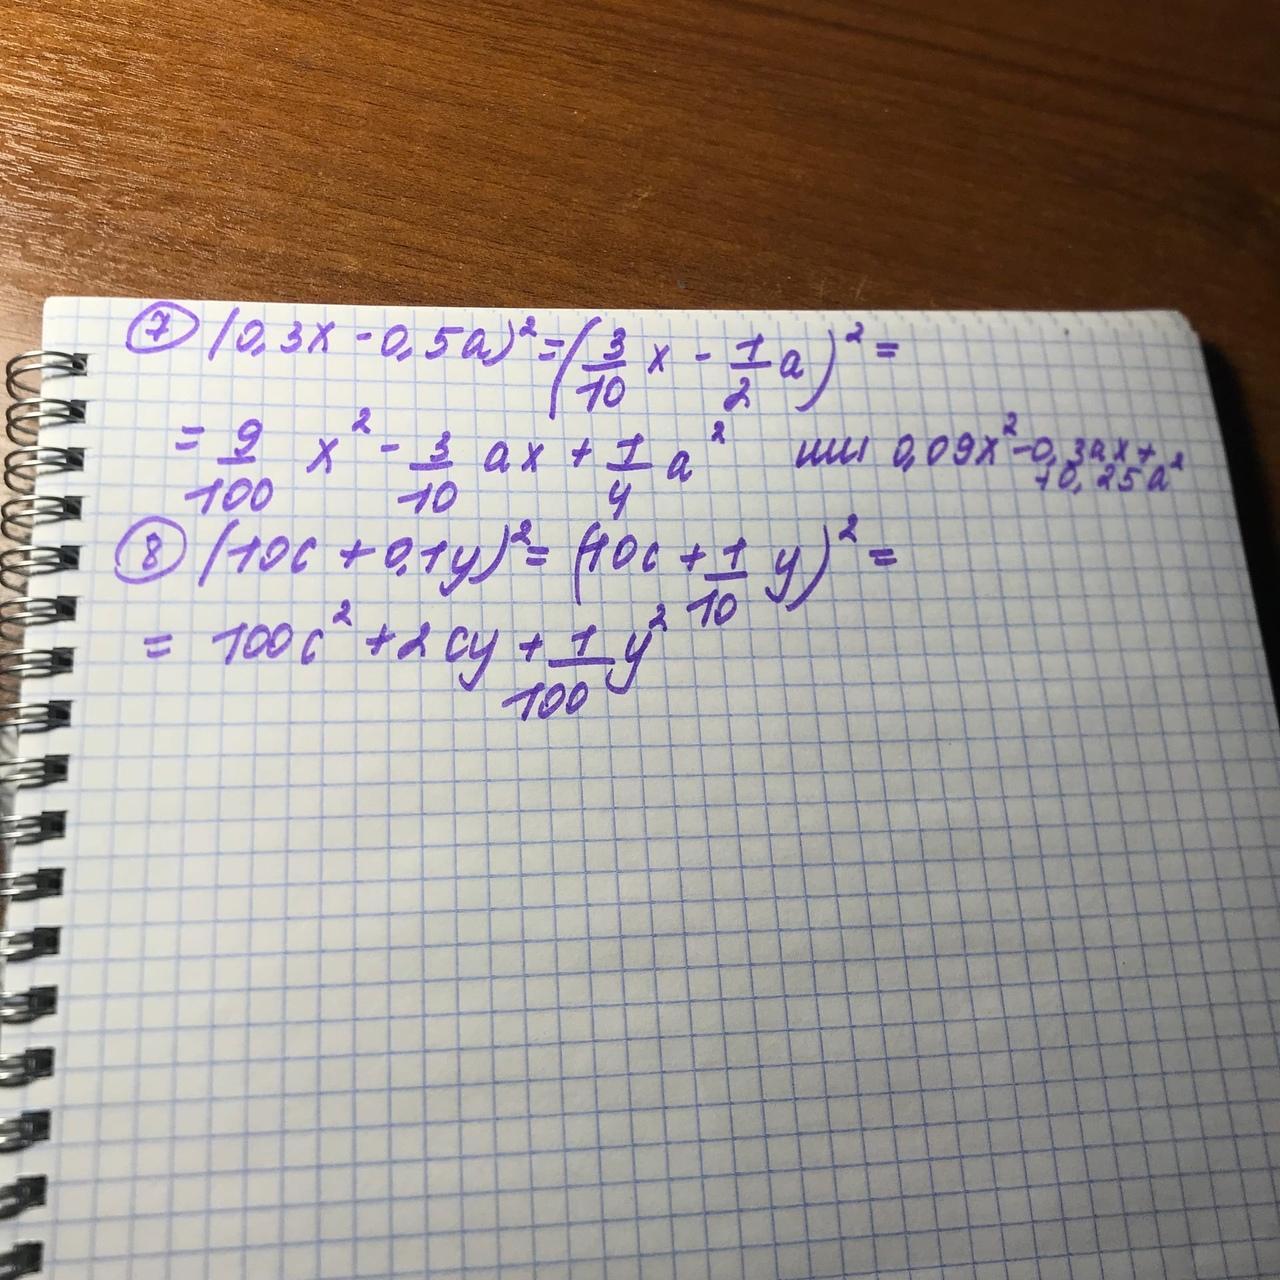 ⑦ (0,3x - 0,5a)² = (3/10 x - 1/2 a)² =
= 9/100 x² - 3/10 ax + 1/4 a² или 0,09x² - 0,3ax +
+ 0,25a²
⑧ (10c + 0,1y)² = (10c + 1/10 y)² =
= 100c² + 2cy + 1/100 y²